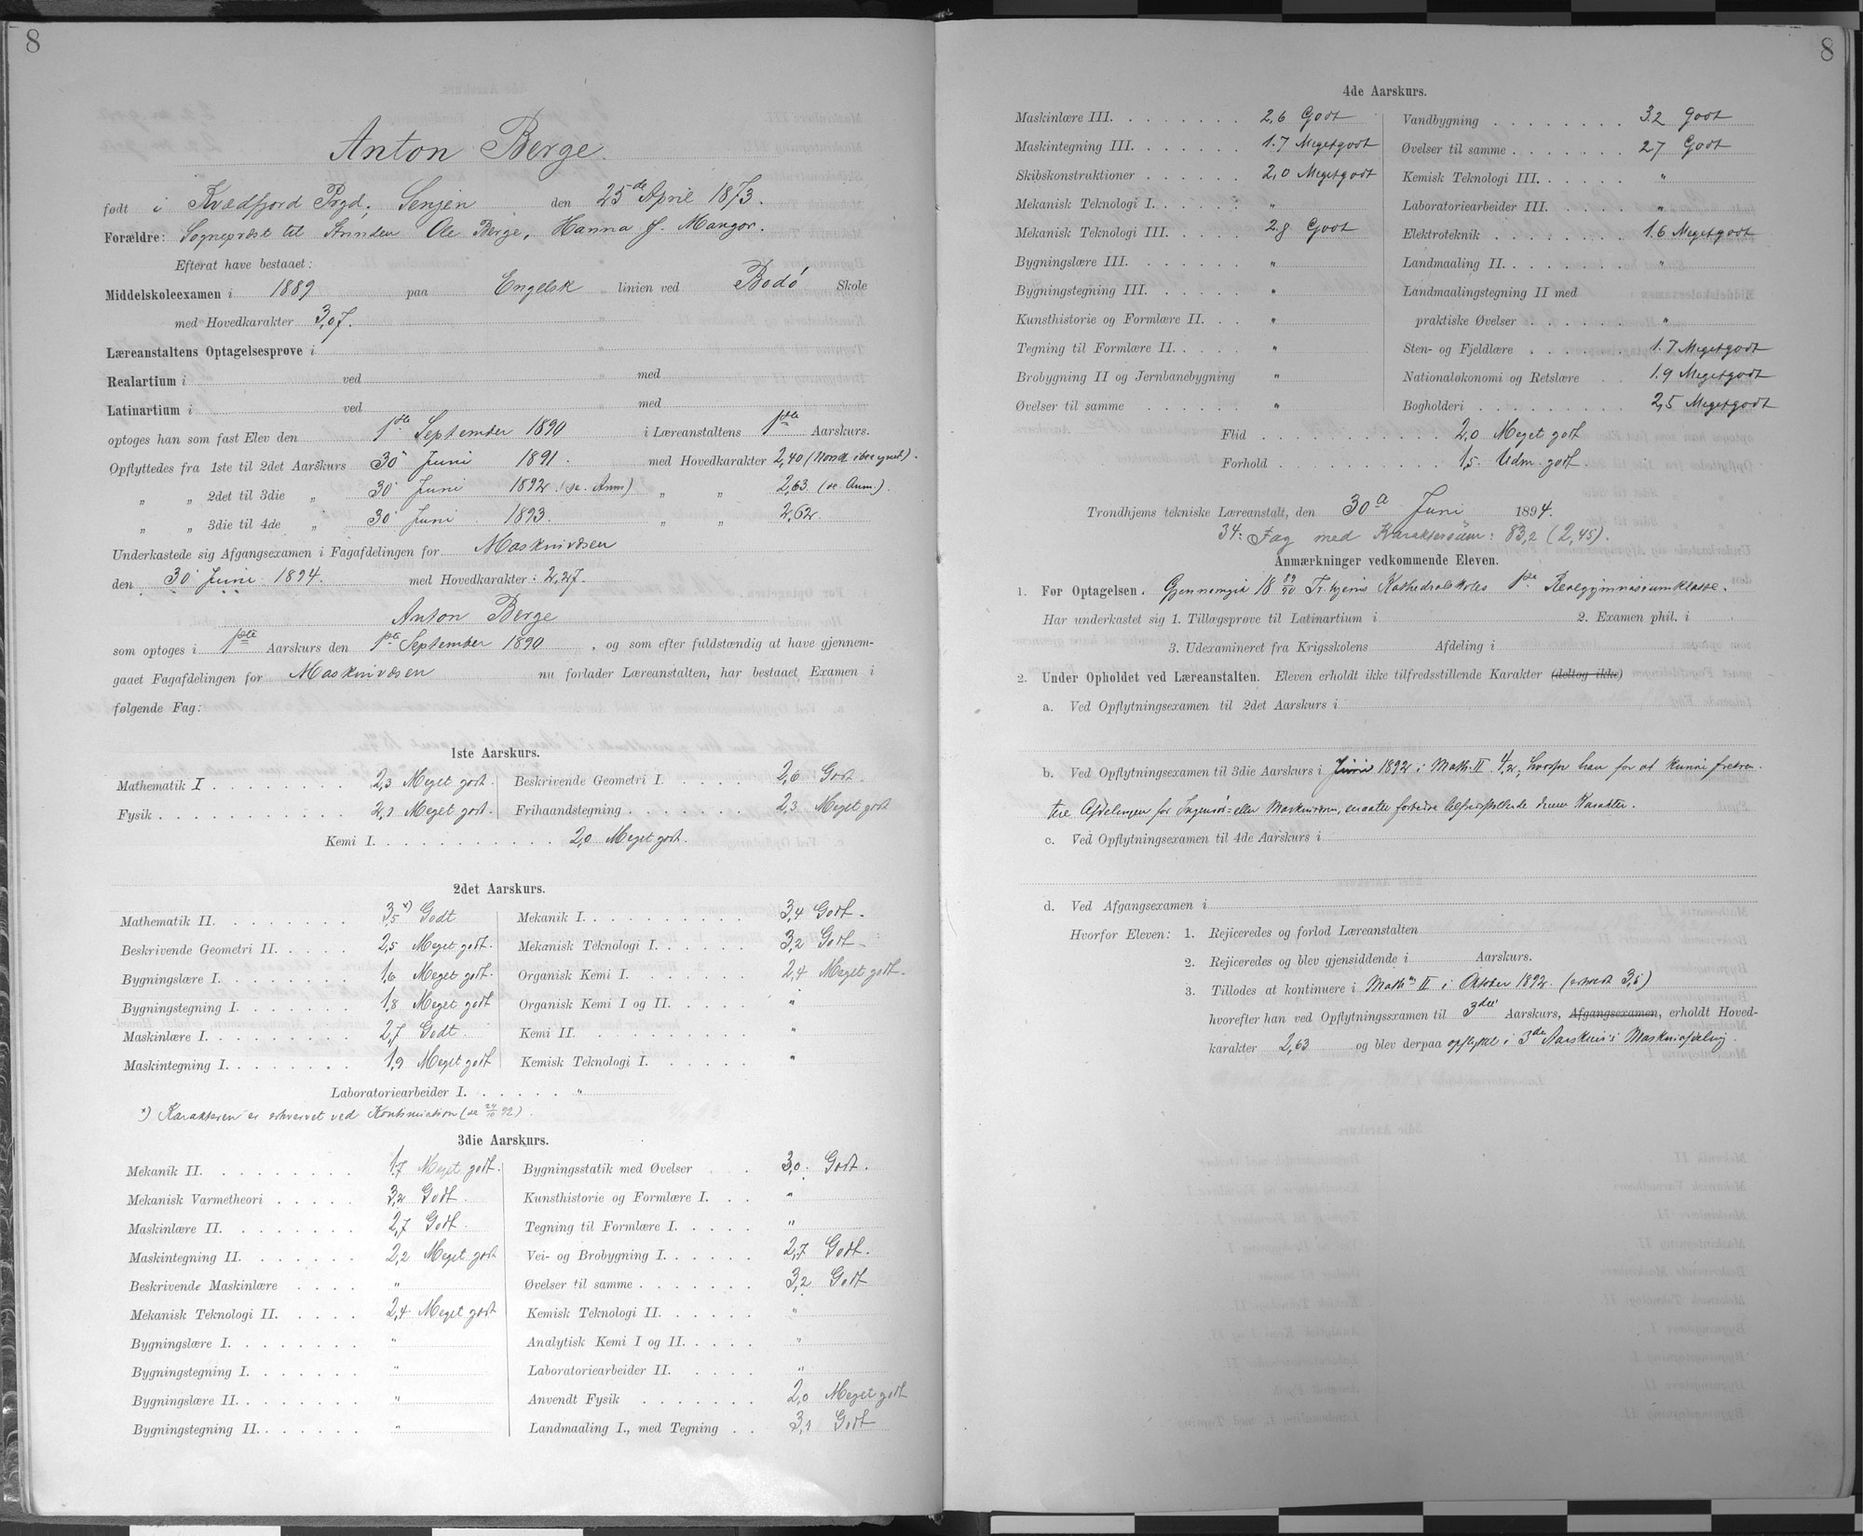 8
Anton Berge.
født i Kvædfjord Prgd, Senjen den 25de April 1873.
Forældre: Sogneprest til Strinden Ole Berge, Hanna f. Mangor.
Efterat have bestaaet:
Middelskoleexamen i 1889 paa Engelsk linien ved Bodø Skole
med Hovedkarakter 3,07.
Læreanstaltens Optagelsesprøve i
Realartium i ved med
Latinartium i ved med
optoges han som fast Elev den 1ste September 1890 i Læreanstaltens 1ste Aarskurs.
Opflyttedes fra 1ste til 2det Aarskurs 30 Juni 1891. med Hovedkarakter 2,40
" " 2det til 3die " 30 Juni 1892 (se Anm) " " 2,63. (se Anm.).
" " 3die til 4de " 30 Juni 1893. " " 2,62.
Underkastede sig Afgangsexamen i Fagafdelingen for Maskinvæsen
den 30 Juni 1894. med Hovedkarakter: 2,27.
Anton Berge
som optoges i 1ste Aarskurs den 1ste September 1890, og som efter fuldstændig at have gjennem-
gaaet Fagafdelingen for Maskinvæsen nu forlader Læreanstalten, har bestaaet Examen i
følgende Fag:
1ste Aarskurs.
Mathematik I 2,3 Meget godt. Beskrivende Geometri I. 2,6 Godt.
Fysik 2,1 Meget godt. Frihaandstegning 2,3 Meget godt
Kemi I. 2,0 Meget godt.
2det Aarskurs.
Mathematik II. 3,5 *) Godt Mekanik I. 3,4 Godt.
Beskrivende Geometri II. 2,5 Meget godt. Mekanisk Teknologi I. 3,2 Godt.
Bygningslære I. 1,6 Meget godt. Organisk Kemi I. 2,4 Meget godt.
Bygningstegning I. 1,8 Meget godt Organisk Kemi I og II. "
Maskinlære I. 2,7 Godt. Kemi II. "
Maskintegning I. 1,9 Meget godt Kemisk Teknologi I. "
Laboratoriearbeider I. "
*) Karakteren er erhvervet ved Kontinuation (se 24/10 92).
3die Aarskurs.
Mekanik II. 1,7 Meget godt. Bygningsstatik med Øvelser 3,0. Godt.
Mekanisk Varmetheori 3,2 Godt. Kunsthistorie og Formlære I. "
Maskinlære II. 2,7 Godt. Tegning til Formlære I. "
Maskintegning II. 2,2 Meget godt Vei- og Brobygning I. 2,7 Godt.
Beskrivende Maskinlære " Øvelser til samme 3,2 Godt
Mekanisk Teknologi II. 2,4 Meget godt Kemisk Teknologi II. "
Bygningslære I. " Analytisk Kemi I og II. "
Bygningstegning I. " Laboratoriearbeider II. "
Bygningslære II. " Anvendt Fysik 2,0 Meget godt
Bygningstegning II. " Landmaaling I., med Tegning 3,1 Godt
8
4de Aarskurs.
Maskinlære III. 2,6 Godt Vandbygning 3.2 Godt
Maskintegning III. 1.7 Megetgodt Øvelser til samme 2,7 Godt
Skibskonstruktioner 2,0 Megetgodt Kemisk Teknologi III. "
Mekanisk Teknologi I. " Laboratoriearbeider III. "
Mekanisk Teknologi III. 2.8 Godt Elektroteknik 1.6 Megetgodt
Bygningslære III. " Landmaaling II. "
Bygningstegning III. " Landmaalingstegning II med
Kunsthistorie og Formlære II. " praktiske Øvelser "
Tegning til Formlære II. " Sten- og Fjeldlære 1.7 Megetgodt
Brobygning II og Jernbanebygning " Nationaløkonomi og Retslære 1.9 Megetgodt
Øvelser til samme " Bogholderi 2,5 Megetgodt
Flid 2,0 Meget godt
Forhold 1,5. Udm. godt.
Trondhjems tekniske Læreanstalt, den 30te Juni 1894.
34: Fag med Karaktersum: 83,2 (2,45).
Anmærkninger vedkommende Eleven.
1. For Optagelsen. Gjennemgik 18 89/90 Tr.hjems Kathedralskoles 1ste Realgymnasiumklasse.
Har underkastet sig 1. Tillægsprøve til Latinartium i 2. Examen phil. i
3. Udexamineret fra Krigsskolens Afdeling i
2. Under Opholdet ved Læreanstalten. Eleven erholdt ikke tilfredsstillende Karakter (deltog ikke)
a. Ved Opflytningsexamen til 2det Aarskurs i
b. Ved Opflytningsexamen til 3die Aarskurs i Juni 1892 i Math. II. 4,2, hvorfor han for at kunne frekven-
tere Afdelingen for Ingeniør- eller Maskinvæsen, maatte forbedre denne Karakter.
c. Ved Opflytningsexamen til 4de Aarskurs i
d. Ved Afgangsexamen i
Hvorfor Eleven: 1. Rejiceredes og forlod Læreanstalten
2. Rejiceredes og blev gjensiddende i Aarskurs.
3. Tillodes at kontinuere i Math. II i Oktober 1892. (erholdt 3,5)
hvorefter han ved Opflytningssxamen til 3die Aarskurs, Afgangsexamen, erholdt Hoved-
karakter 2,63 og blev derpaa opflyttet i 3die Aarskurs's Maskinafdeling.